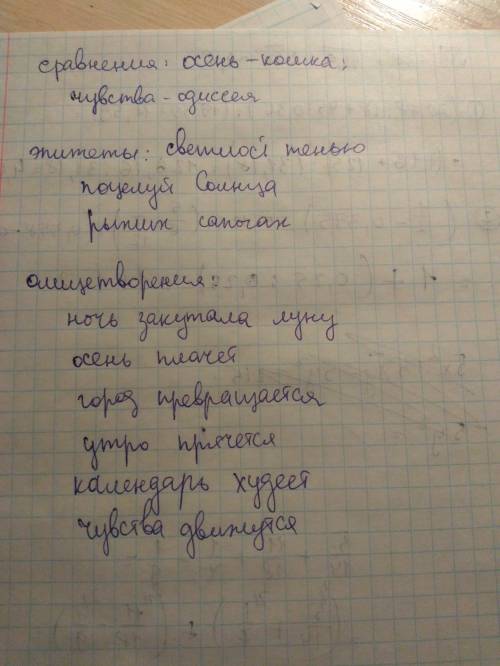 сравнения: осень-кошка;
чувства-одиссея
эпитеты: тенью
поцелуй Солнца
рыжих сапогах
олицетворения:
ночь закутала луну
осень плачет
город превращается
утро прячется
календарь худеет
чувства движутся